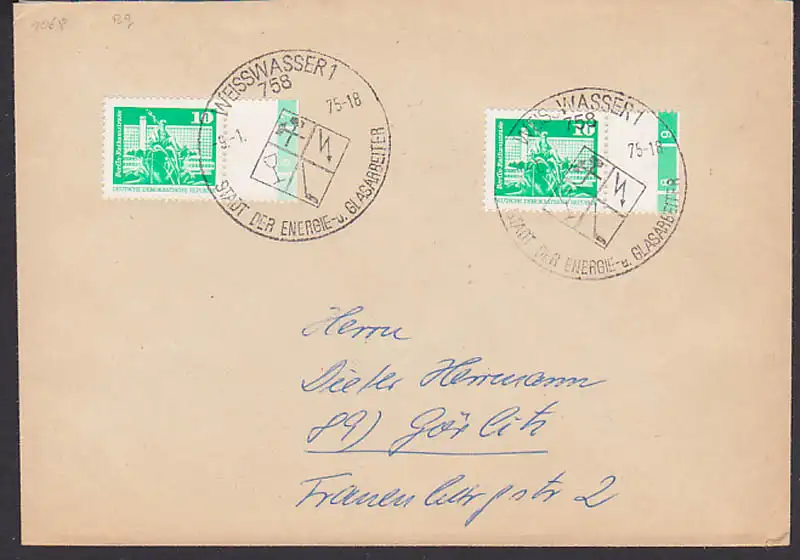 WEISSWASSER 1
758
-9.-1. 75-18
STADT DER ENERGIE- u. GLASARBEITER
10
Berlin-Rathausstraße
DEUTSCHE DEMOKRATISCHE REPUBLIK
WEISSWASSER 1
758
75-18
STADT DER ENERGIE- u. GLASARBEITER
10
Berlin-Rathausstraße
DEUTSCHE DEMOKRATISCHE REPUBLIK
9
Herrn
Dieter Herrmann
89) Görlitz
Frauenburgstr 2